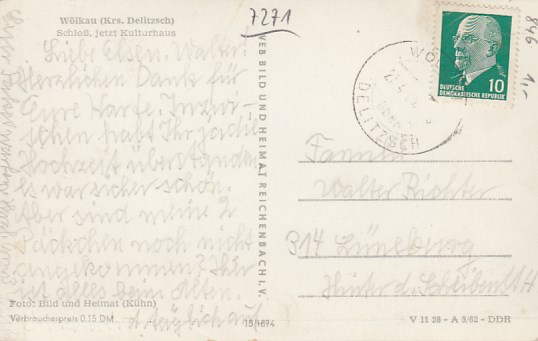 7271
846 1,-
Wölkau (Krs. Delitzsch)
Schloß, jetzt Kulturhaus
Liebe Elsen, Walter!
Herzlichen Dank für
Eure Karte. Inzwi-
schen habt Ihr ja die
Hochzeit über
es war sicher schön.
Aber sind meine 2
Päckchen noch nicht
angekommen? Hier
ist alles beim Alten.
täglich auf
Foto: Bild und Heimat (Kühn)
Verbraucherpreis 0.15 DM
VEB BILD UND HEIMAT REICHENBACH I. V.
DEUTSCHE
DEMOKRATISCHE REPUBLIK
10
WÖ
DELITZSCH
Familie
Walter Richter
314 Lüneburg
Hinter d.
V 11 28 - A 3/62 - DDR